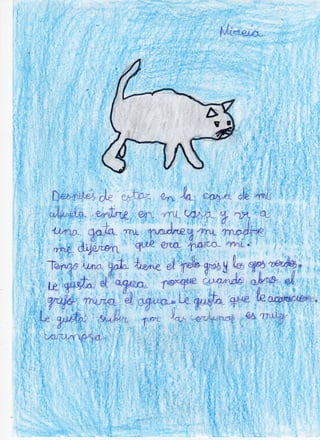 Mireia
Después de estar en la casa de mi
abuela entre en mi casa y vi a
una gata mi padre y mi madre
me dijeron que era para mi.
Tengo una gata tiene el pelo gris y los ojos verdes.
Le gusta el agua porque cuando abro el
grifo mira el agua. Le gusta que le acaricien.
Le gusta subir por las cortinas es muy
cariñosa